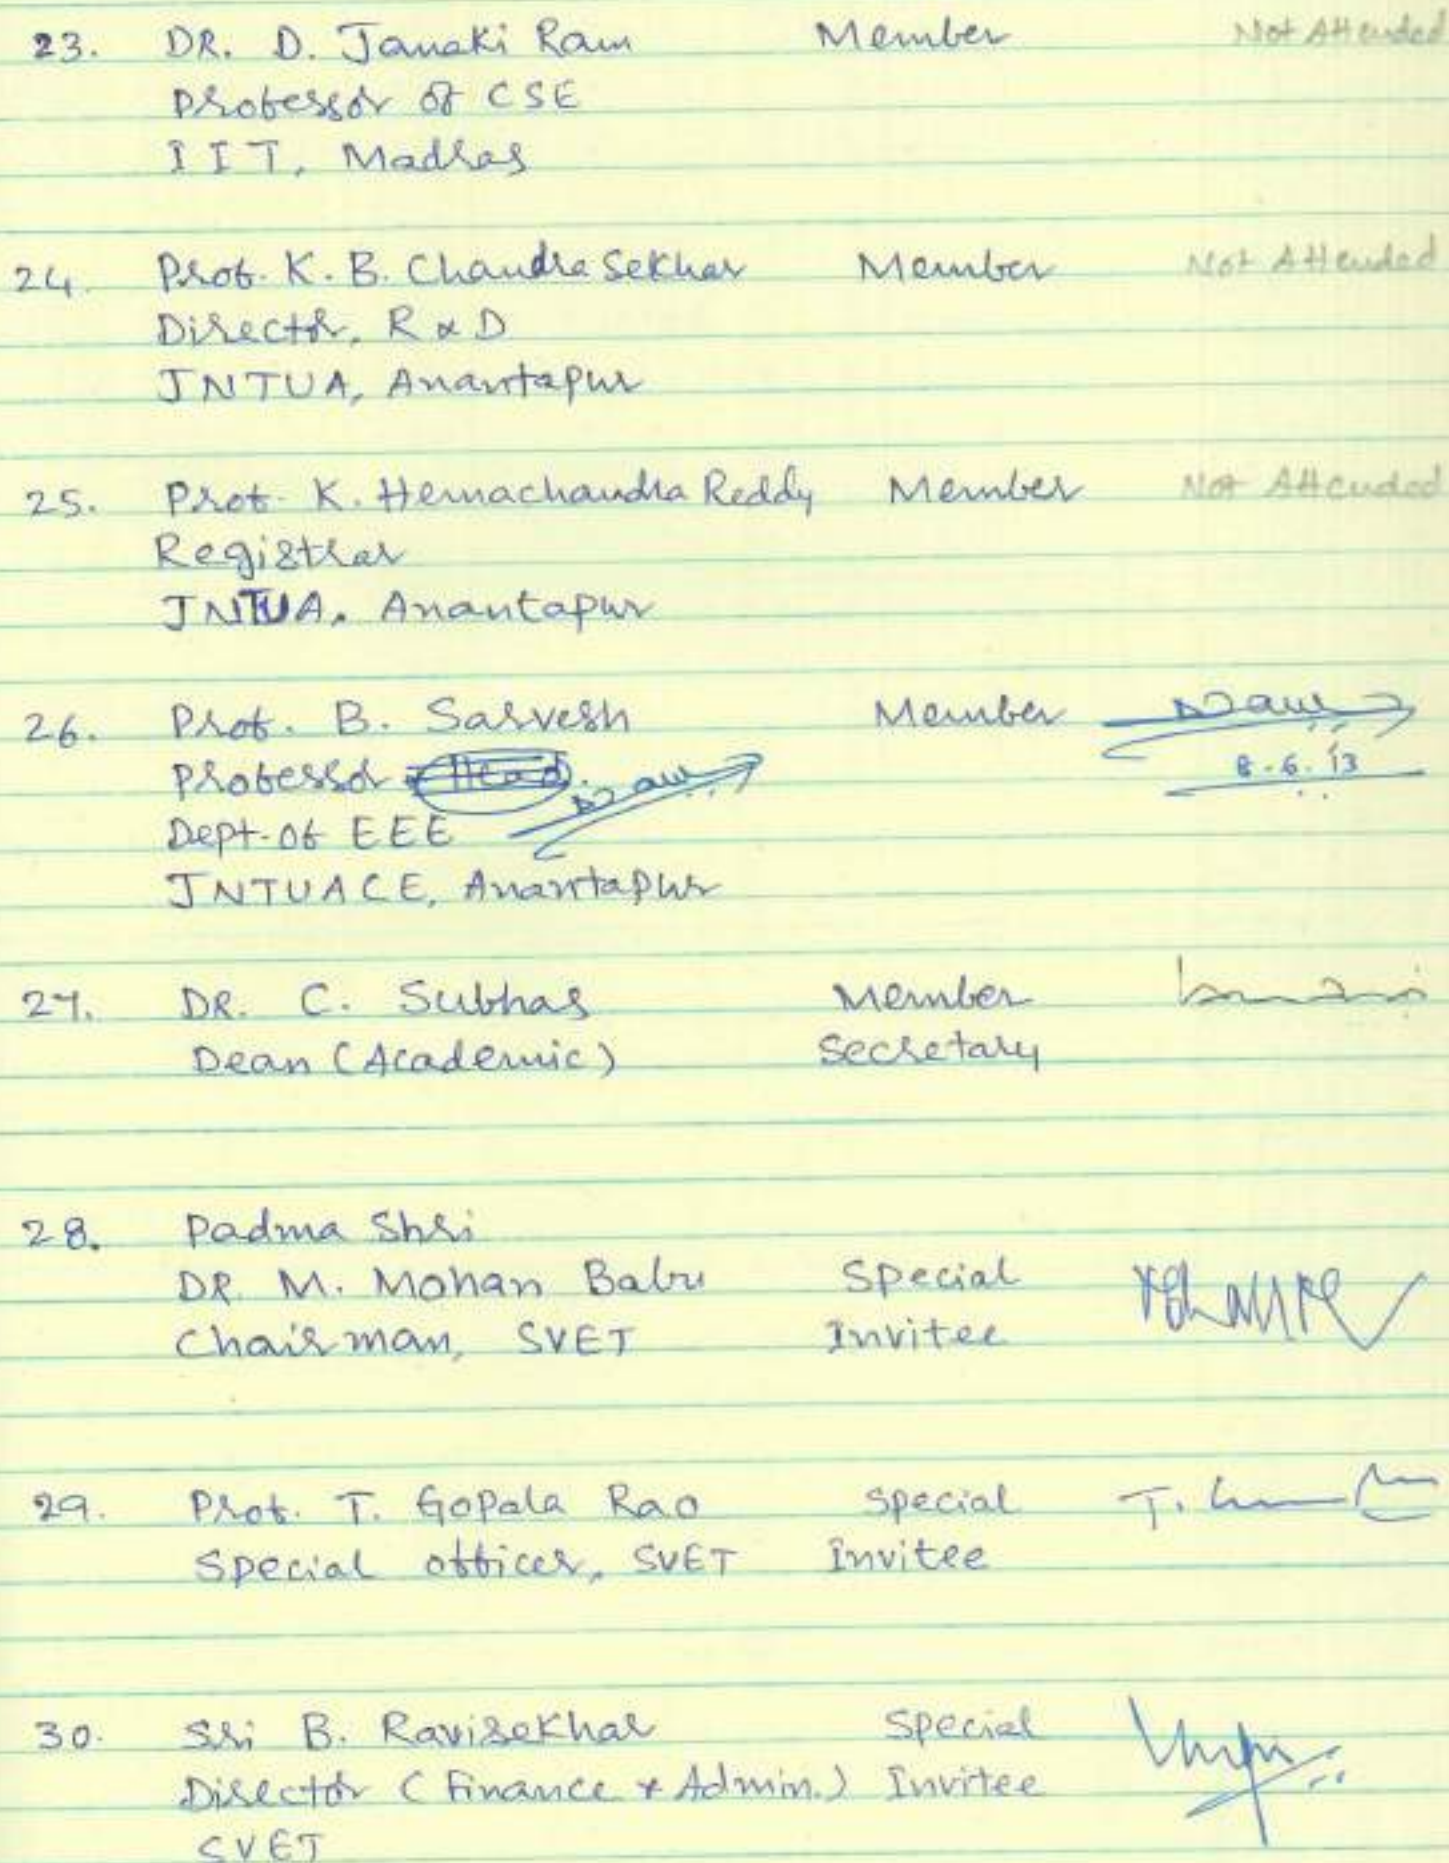 23. DR. D. Janaki Ram Member Not Attended
Professor of CSE
IIT, Madras
24. Prof. K. B. Chandra Sekhar Member Not Attended
Director, R & D
JNTUA, Anantapur
25. Prof. K. Hemachandra Reddy Member Not Attended
Registrar
JNTUA, Anantapur
26. Prof. B. Sarvesh Member
Professor & Head. 8.6.13
Dept. of EEE
JNTUACE, Anantapur
27. DR. C. Subhas Member
Dean (Academic) Secretary
28. Padma Shri
DR. M. Mohan Babu Special
Chairman, SVET Invitee
29. Prof. T. Gopala Rao Special T.
Special Officer, SVET Invitee
30. Sri B. Ravisekhar Special
Director (Finance & Admin.) Invitee
SVET